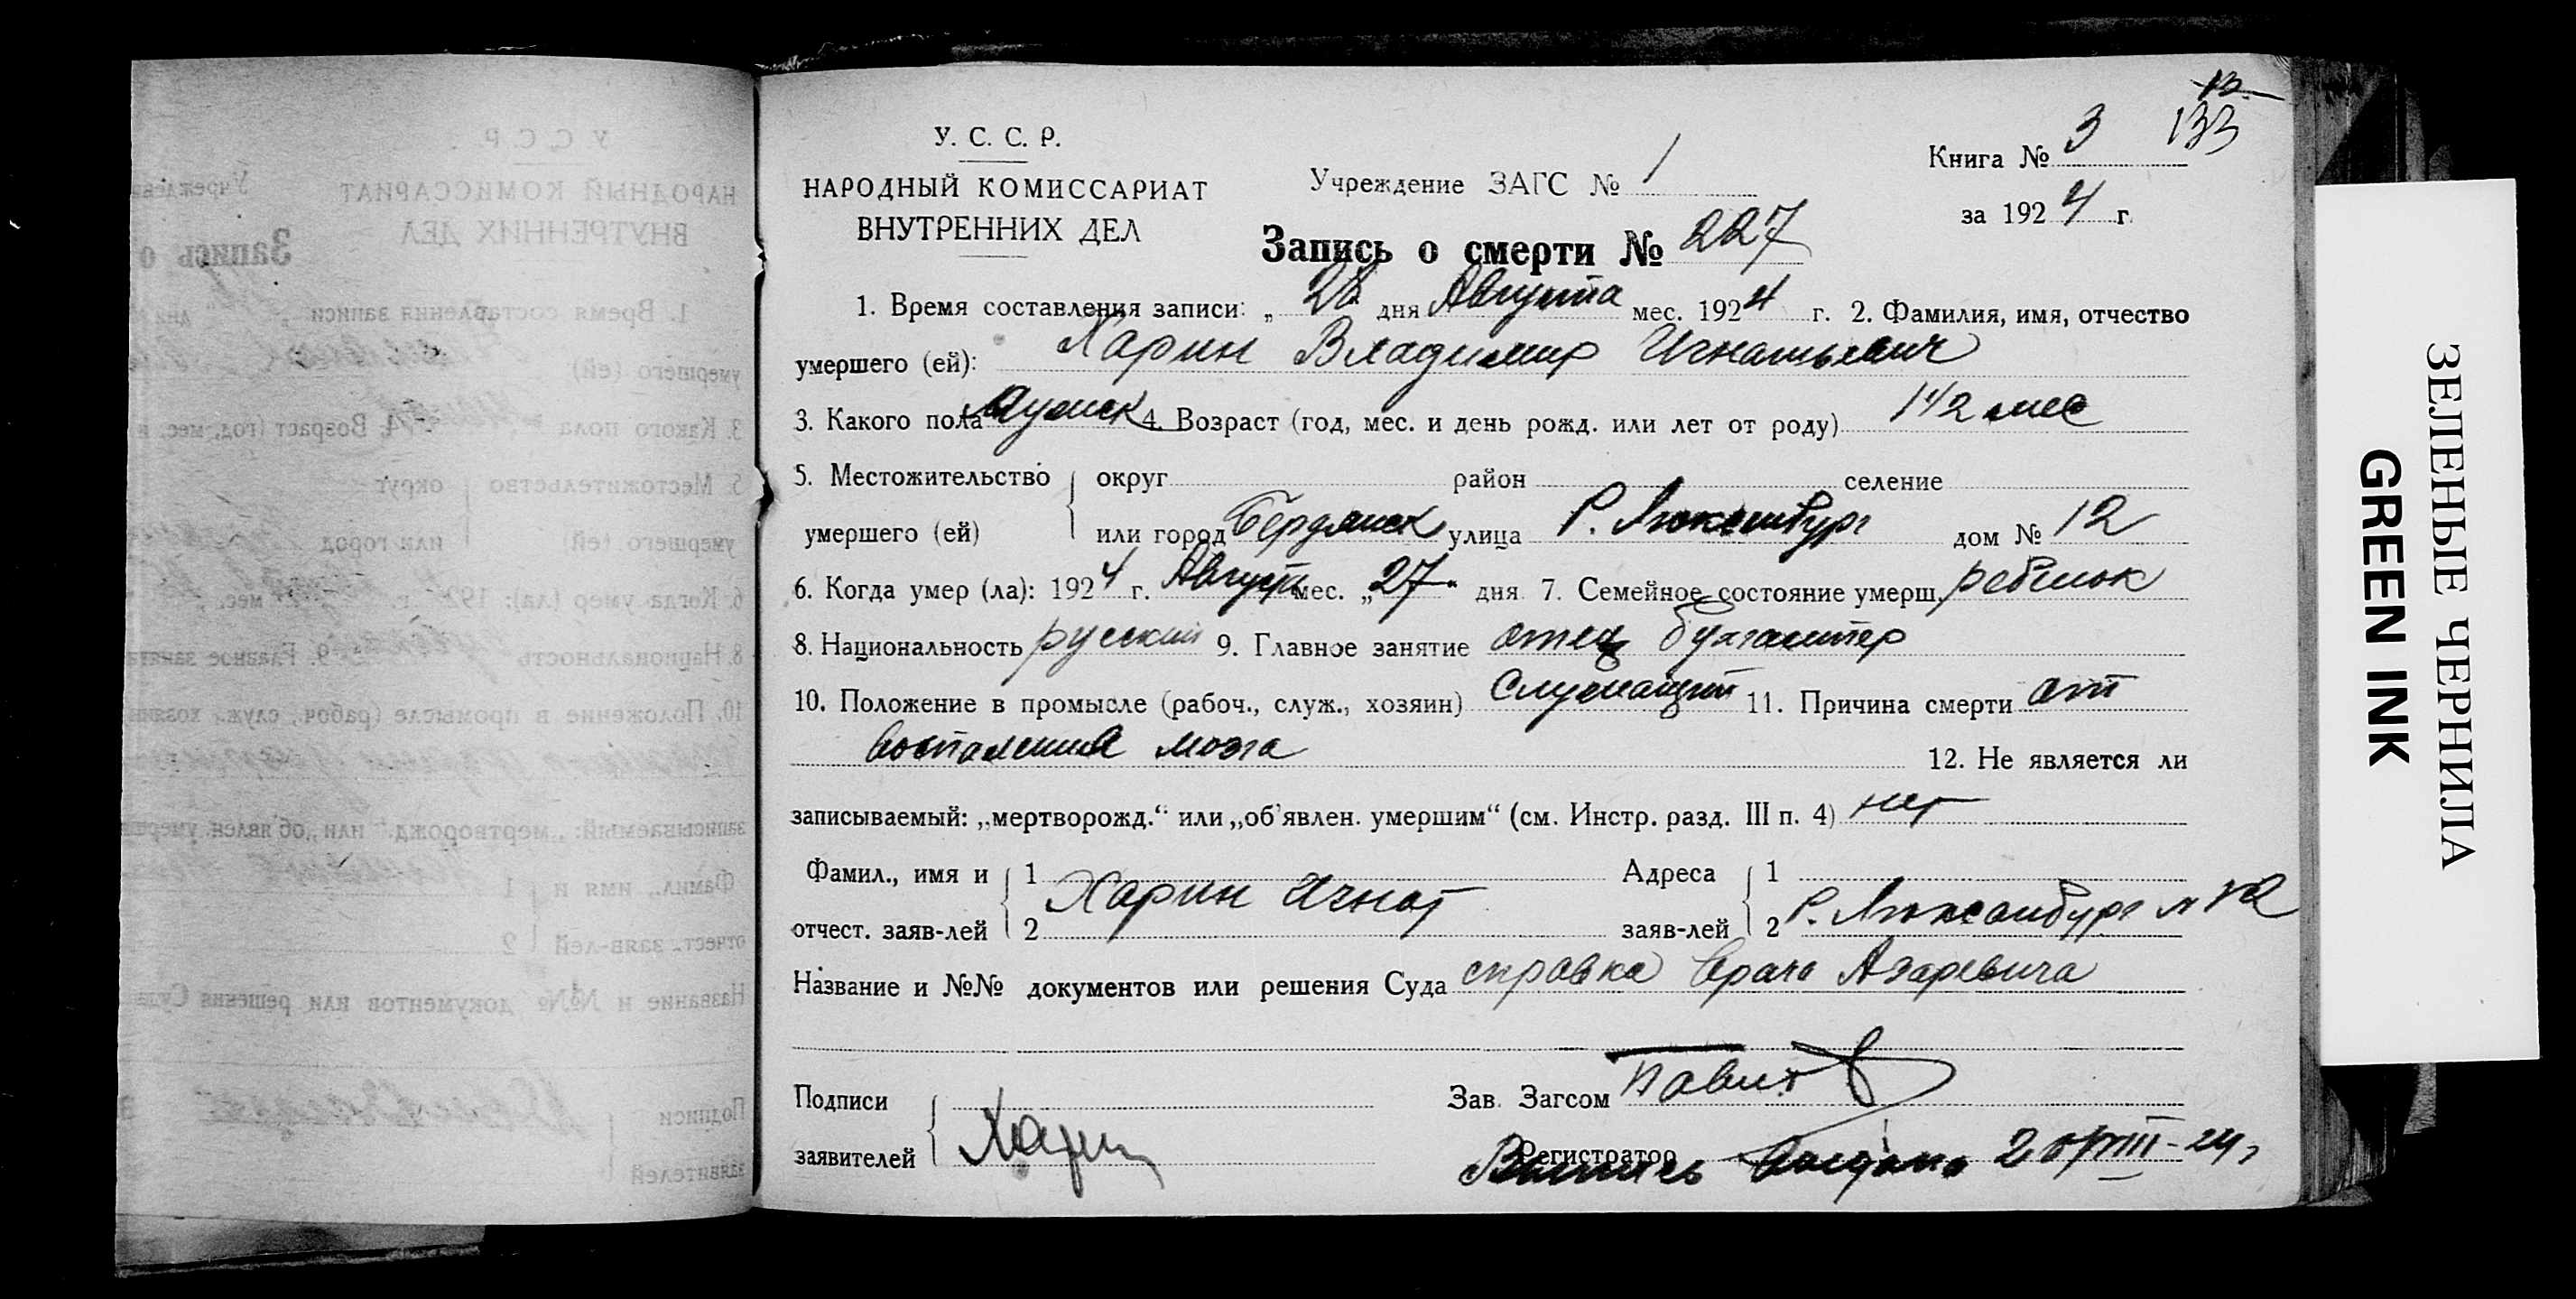 12
133
У. С. С. Р.
НАРОДНЫЙ КОМИССАРИАТ
ВНУТРЕННИХ ДЕЛ
Учреждение ЗАГС № 1
Книга № 3
за 1924 г.
Запись о смерти № 227
1. Время составления записи: „ 28 дня Августа мес. 1924 г. 2. Фамилия, имя, отчество
умершего (ей): Харин Владимир Игнатьевич
3. Какого пола мужск 4. Возраст (год, мес. и день рожд. или лет от роду) 1 1/2 мес
5. Местожительство умершего (ей) округ район селение
или город Бердянск улица Р. Люксембург дом № 12
6. Когда умер (ла): 1924 г. Августа мес. „27“ дня 7. Семейное состояние умерш. ребенок
8. Национальность русский 9. Главное занятие отец бухгалтер
10. Положение в промысле (рабоч., служ., хозяин) Служащий 11. Причина смерти от
воспаления мозга 12. Не является ли
записываемый: „мертворожд.“ или „об'явлен. умершим“ (см. Инстр. разд. III п. 4) нет
Фамил., имя и 1 Адреса 1
отчест. заяв-лей 2 Харин Игнат заяв-лей 2 Р. Люксембург № 12
Название и №№ документов или решения Суда справка врача Азаревича
Подписи Зав. Загсом
заявителей Харин Регистратор
Выпись выдана
ЗЕЛЕНЫЕ ЧЕРНИЛА
GREEN INK